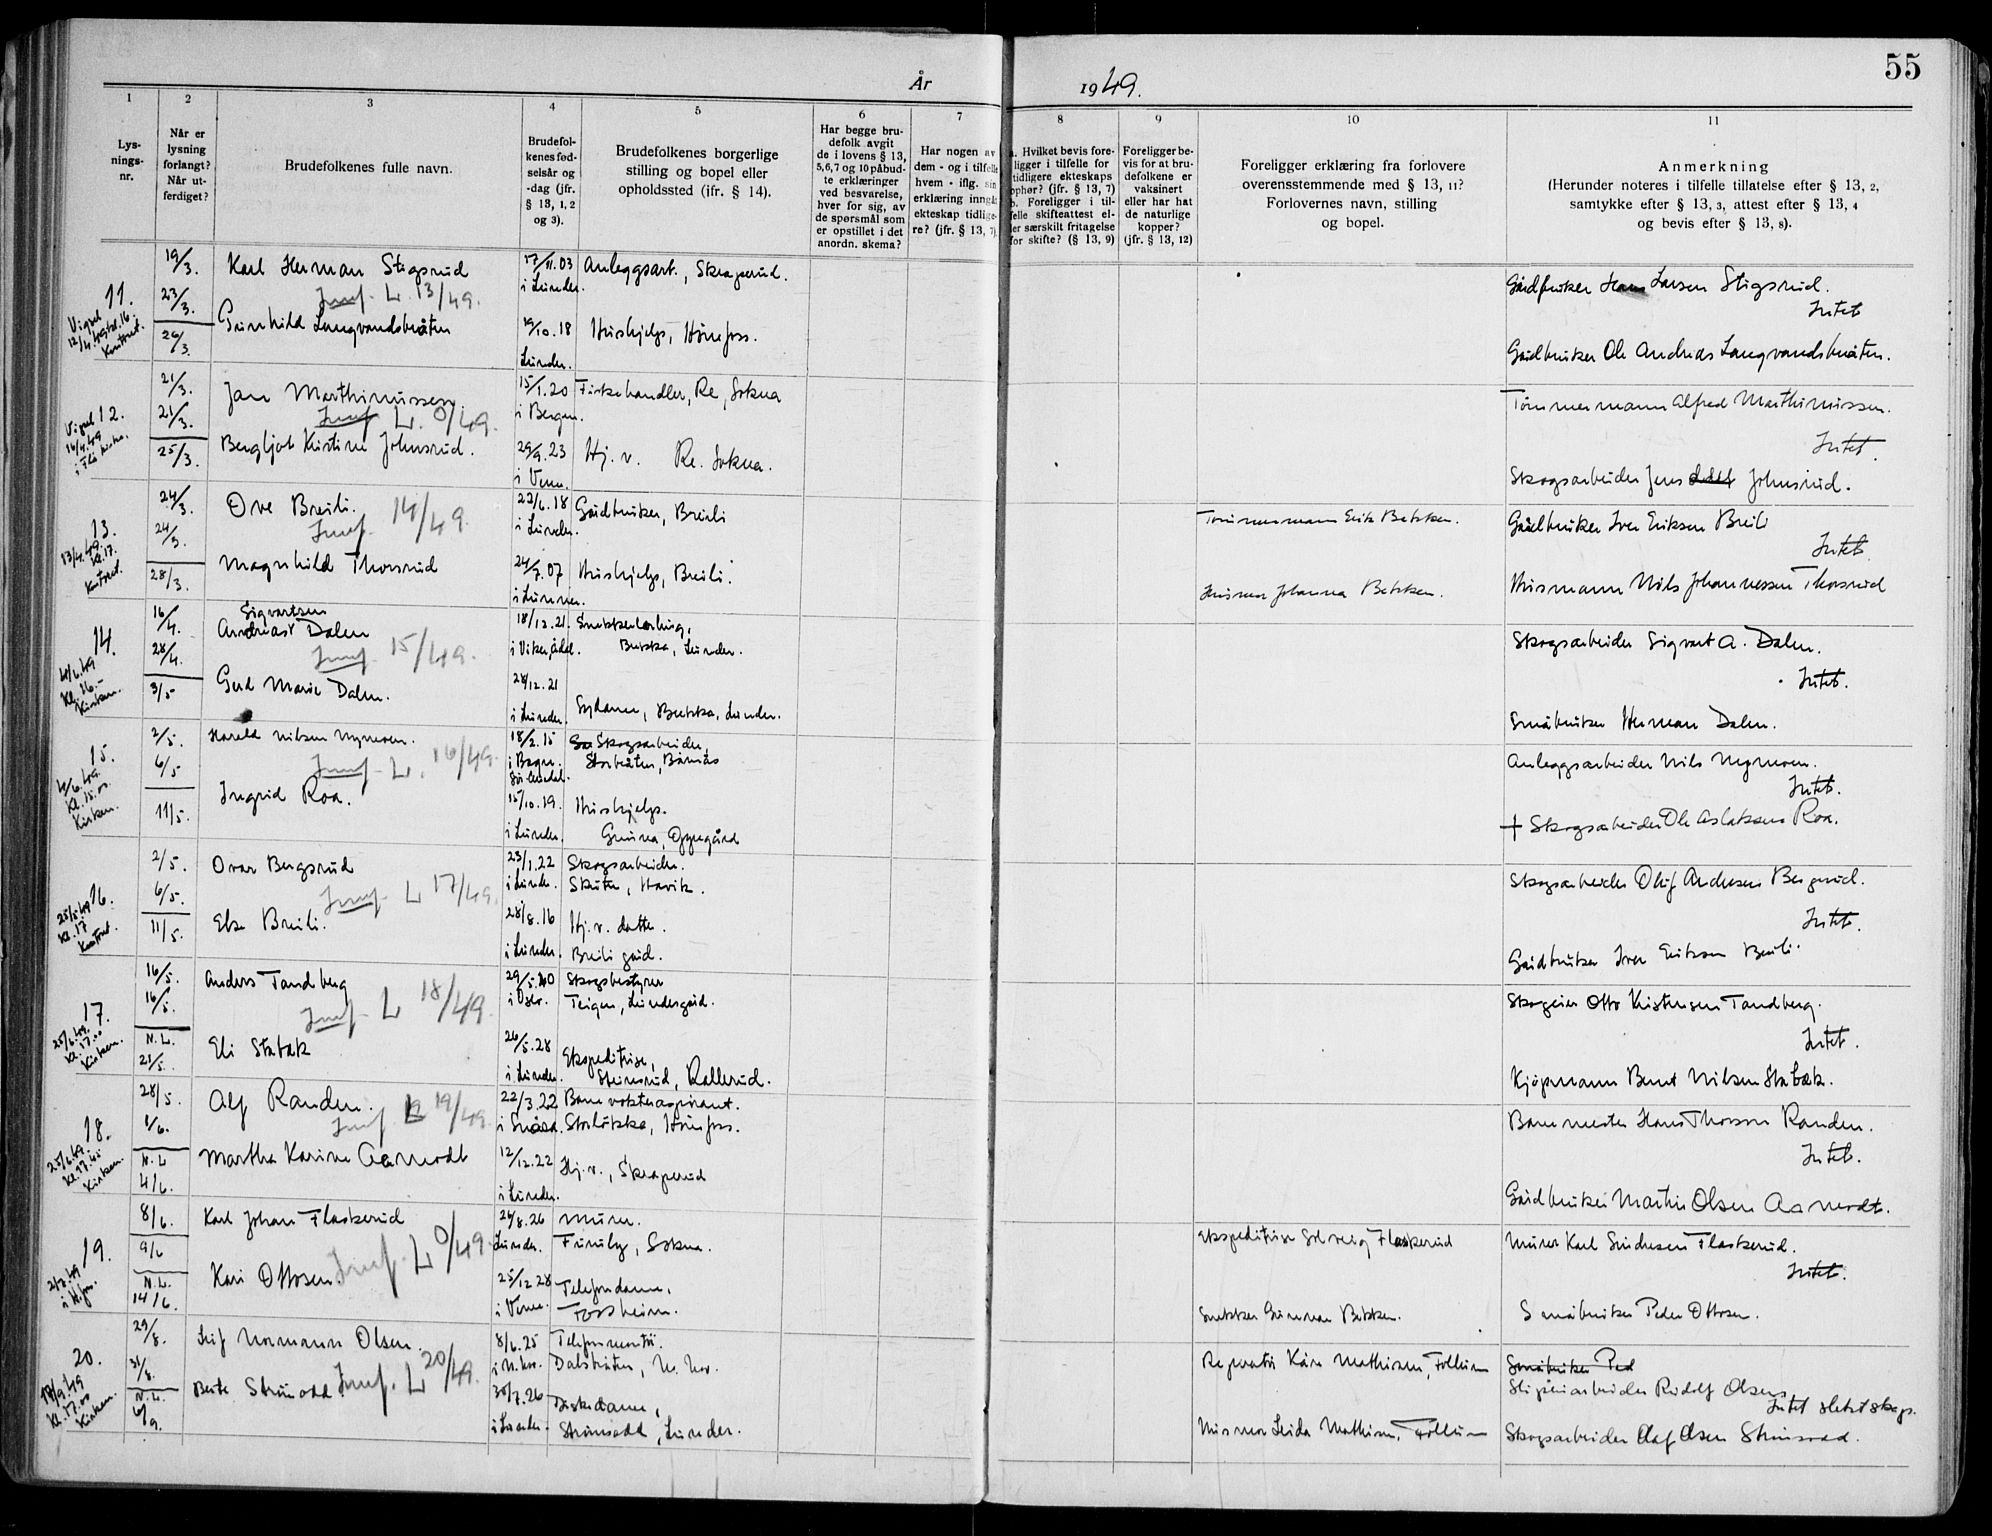 55
År 1949.
1
2
3
4
5
6
7
8
9
10
11
Lys-
nings-
nr.
Når er
lysning
forlangt?
Når ut-
ferdiget?
Brudefolkenes fulle navn.
Brudefol-
kenes fød-
selsår og
-dag (jfr.
§ 13, 1, 2
og 3).
Brudefolkenes borgerlige
stilling og bopel eller
opholdssted (ifr. § 14).
Har begge bru-
defolk avgit
de i lovens § 13,
5, 6, 7 og 10 påbud-
te erklæringer
ved besvarelse,
hver for sig, av
de spørsmål som
er opstillet i det
anordn. skema?
Har nogen av
dem - og i tilfelle
hvem - iflg. sin
erklæring inngåt
ekteskap tidlige-
re? (jfr. § 13, 7)
a. Hvilket bevis fore-
ligger i tilfelle for
tidligere ekteskaps
ophør? (jfr. § 13, 7)
b. Foreligger i til-
felle skifteattest el-
ler særskilt fritagelse
for skifte? (§ 13, 9)
Foreligger be-
vis for at bru-
defolkene er
vaksinert
eller har hat
de naturlige
kopper?
(jfr. § 13, 12)
Foreligger erklæring fra forlovere
overensstemmende med § 13, 11?
Forlovernes navn, stilling
og bopel.
Anmerkning
(Herunder noteres i tilfelle tillatelse efter § 13, 2,
samtykke efter § 13, 3, attest efter § 13, 4
og bevis efter § 13, 8).
11.
Viget
Kontoret.
19/3.
23/3.
26/3.
Karl Herman Stigsrud
Innf. L. 13/49.
Gunhild Langvandsbråten
17/11.03
i Lunder.
19/10.18
Lunder.
Anleggsarb., Skraperud.
Hushjelp, Hönefoss.
Gårdbruker Hans Larsen Stigsrud.
Intet
Gårdbruker Ole Andreas Langvandsbråten.
12.
Viget
16/4.49
i Flå kirke.
21/3.
21/3.
25/3.
Jan Marthinussen
Innf. L. 0/49.
Bergljot Kristine Johnsrud.
15/1.20
i Bergen.
29/9.23
i Veme.
Fiskehandler, Re, Sokna
Hj. v. Re. Sokna.
Tömmermann Alfred Marthinussen.
Intet.
Skogsarbeider Jens Johnsrud.
13.
13/4.49.
Kl. 17.
Kontoret.
24/3.
24/3.
28/3.
Ove Breili.
Innf. 14/49.
Magnhild Thorsrud
22/6.18
i Lunder.
24/7.07
i Lunner.
Gårdbruker, Breili
Hushjelp, Breili.
Tömmermann Erik Bekken.
Husmor Johanna Bekken.
Gårdbruker Iver Eriksen Breili
Intet.
Husmann Nils Johannessen Thorsrud
14.
4/6.49
Kl. 16.-
Kirken.
16/4.
28/4.
3/5
Sigvartsen
Andreas Dalen
Innf. 15/49.
Gerd Marie Dalen.
18/12.21.
i Viker, Ådal.
24/12.21
i Lunder.
Snekkerlærling,
Bekka, Lunder.
Sydame, Bekka, Lunder.
Skogsarbeider Sigvart A. Dalen.
Intet.
Småbruker Herman Dalen.
15.
4/6.49.
Kl. 15.00
Kirken.
2/5.
6/5
11/5.
Harald Nilsen Nymoen.
Innf. L. 16/49.
Ingrid Roa.
18/2.15
i Bagn.
Sör-Aurdal.
15/10.19.
i Lunder.
Skogsarbeider,
Storbråten, Bårnås
Hushjelp.
Gunna, Oppegård
Anleggsarbeider Nils Nymoen.
Intet.
+ Skogsarbeider Ole Aslaksen Roa.
16.
25/5.49
Kl. 17
Kontoret.
2/5.
6/5.
11/5.
Ovar Bergsrud
Innf. L 17/49.
Else Breili.
23/1.22
i Lunder.
28/8.16
i Lunder.
Skogsarbeider.
Skuta, Havik.
Hj. v. datter.
Breili gård.
Skogsarbeider Oluf Andersen Bergsrud.
Intet.
Gårdbruker Iver Eriksen Breili.
17.
25/6.49.
Kl. 17.00
Kirken.
16/5.
16/5.
N. L.
21/5.
Anders Tandberg
Innf. L 18/49.
Eli Stabæk
29/5.20
i Oslo.
26/5.28
i Lunder.
Skogsbestyrer
Teigen, Lundergård.
Ekspeditrise,
Steinsrud, Rallerud.
Skogeier Otto Kristensen Tandberg.
Intet.
Kjöpmann Bernt Nilsen Stabæk.
18.
25/6.49.
Kl. 17.45
Kirken.
28/5.
1/6.
N. L
4/6.
Alf Randen.
Innf. L 19/49
Martha Karine Aamodt
22/3.22
12/12.22
i Lunder.
Banevokteraspirant.
Storlökka, Hönefoss.
Hj. v., Skraperud
Banemester Hans Thorson Randen.
Intet.
Gårdbruker Martin Olsen Aamodt.
19.
8/6.
9/6
N. L.
14/6.
Karl Johan Flaskerud
Innf. L 0/49
Kari Ottosen
24/8.26
Lunder.
25/12 28
i Veme.
Murer.
Furuly, Sokna.
Telefondame,
Fossheim.
Ekspeditrise Solveig Flaskerud
Snekker Gunnar Bekken.
Murer Karl Sindresen Flaskerud.
Intet.
Småbruker Peder Ottosen.
20.
17/9.49
Kl. 17.00
Kirken.
29/8.
31/8.
N. L.
6/9.
Leif Normann Olsen.
Innf. L 20/49.
Berte Strömsodd
8/6.25
30/7.26
i Lunder.
Telefonmontör.
Diskedame,
Strömsodd, Lunder.
Reparatör Kåre Mathisen, Follum
Husmor Leida Mathisen, Follum
Småbruker Ped
Sliperiarbeider Rudolf Olsen
Intet slektskap.
Skogsarbeider Olaf Olsen Strömsodd.